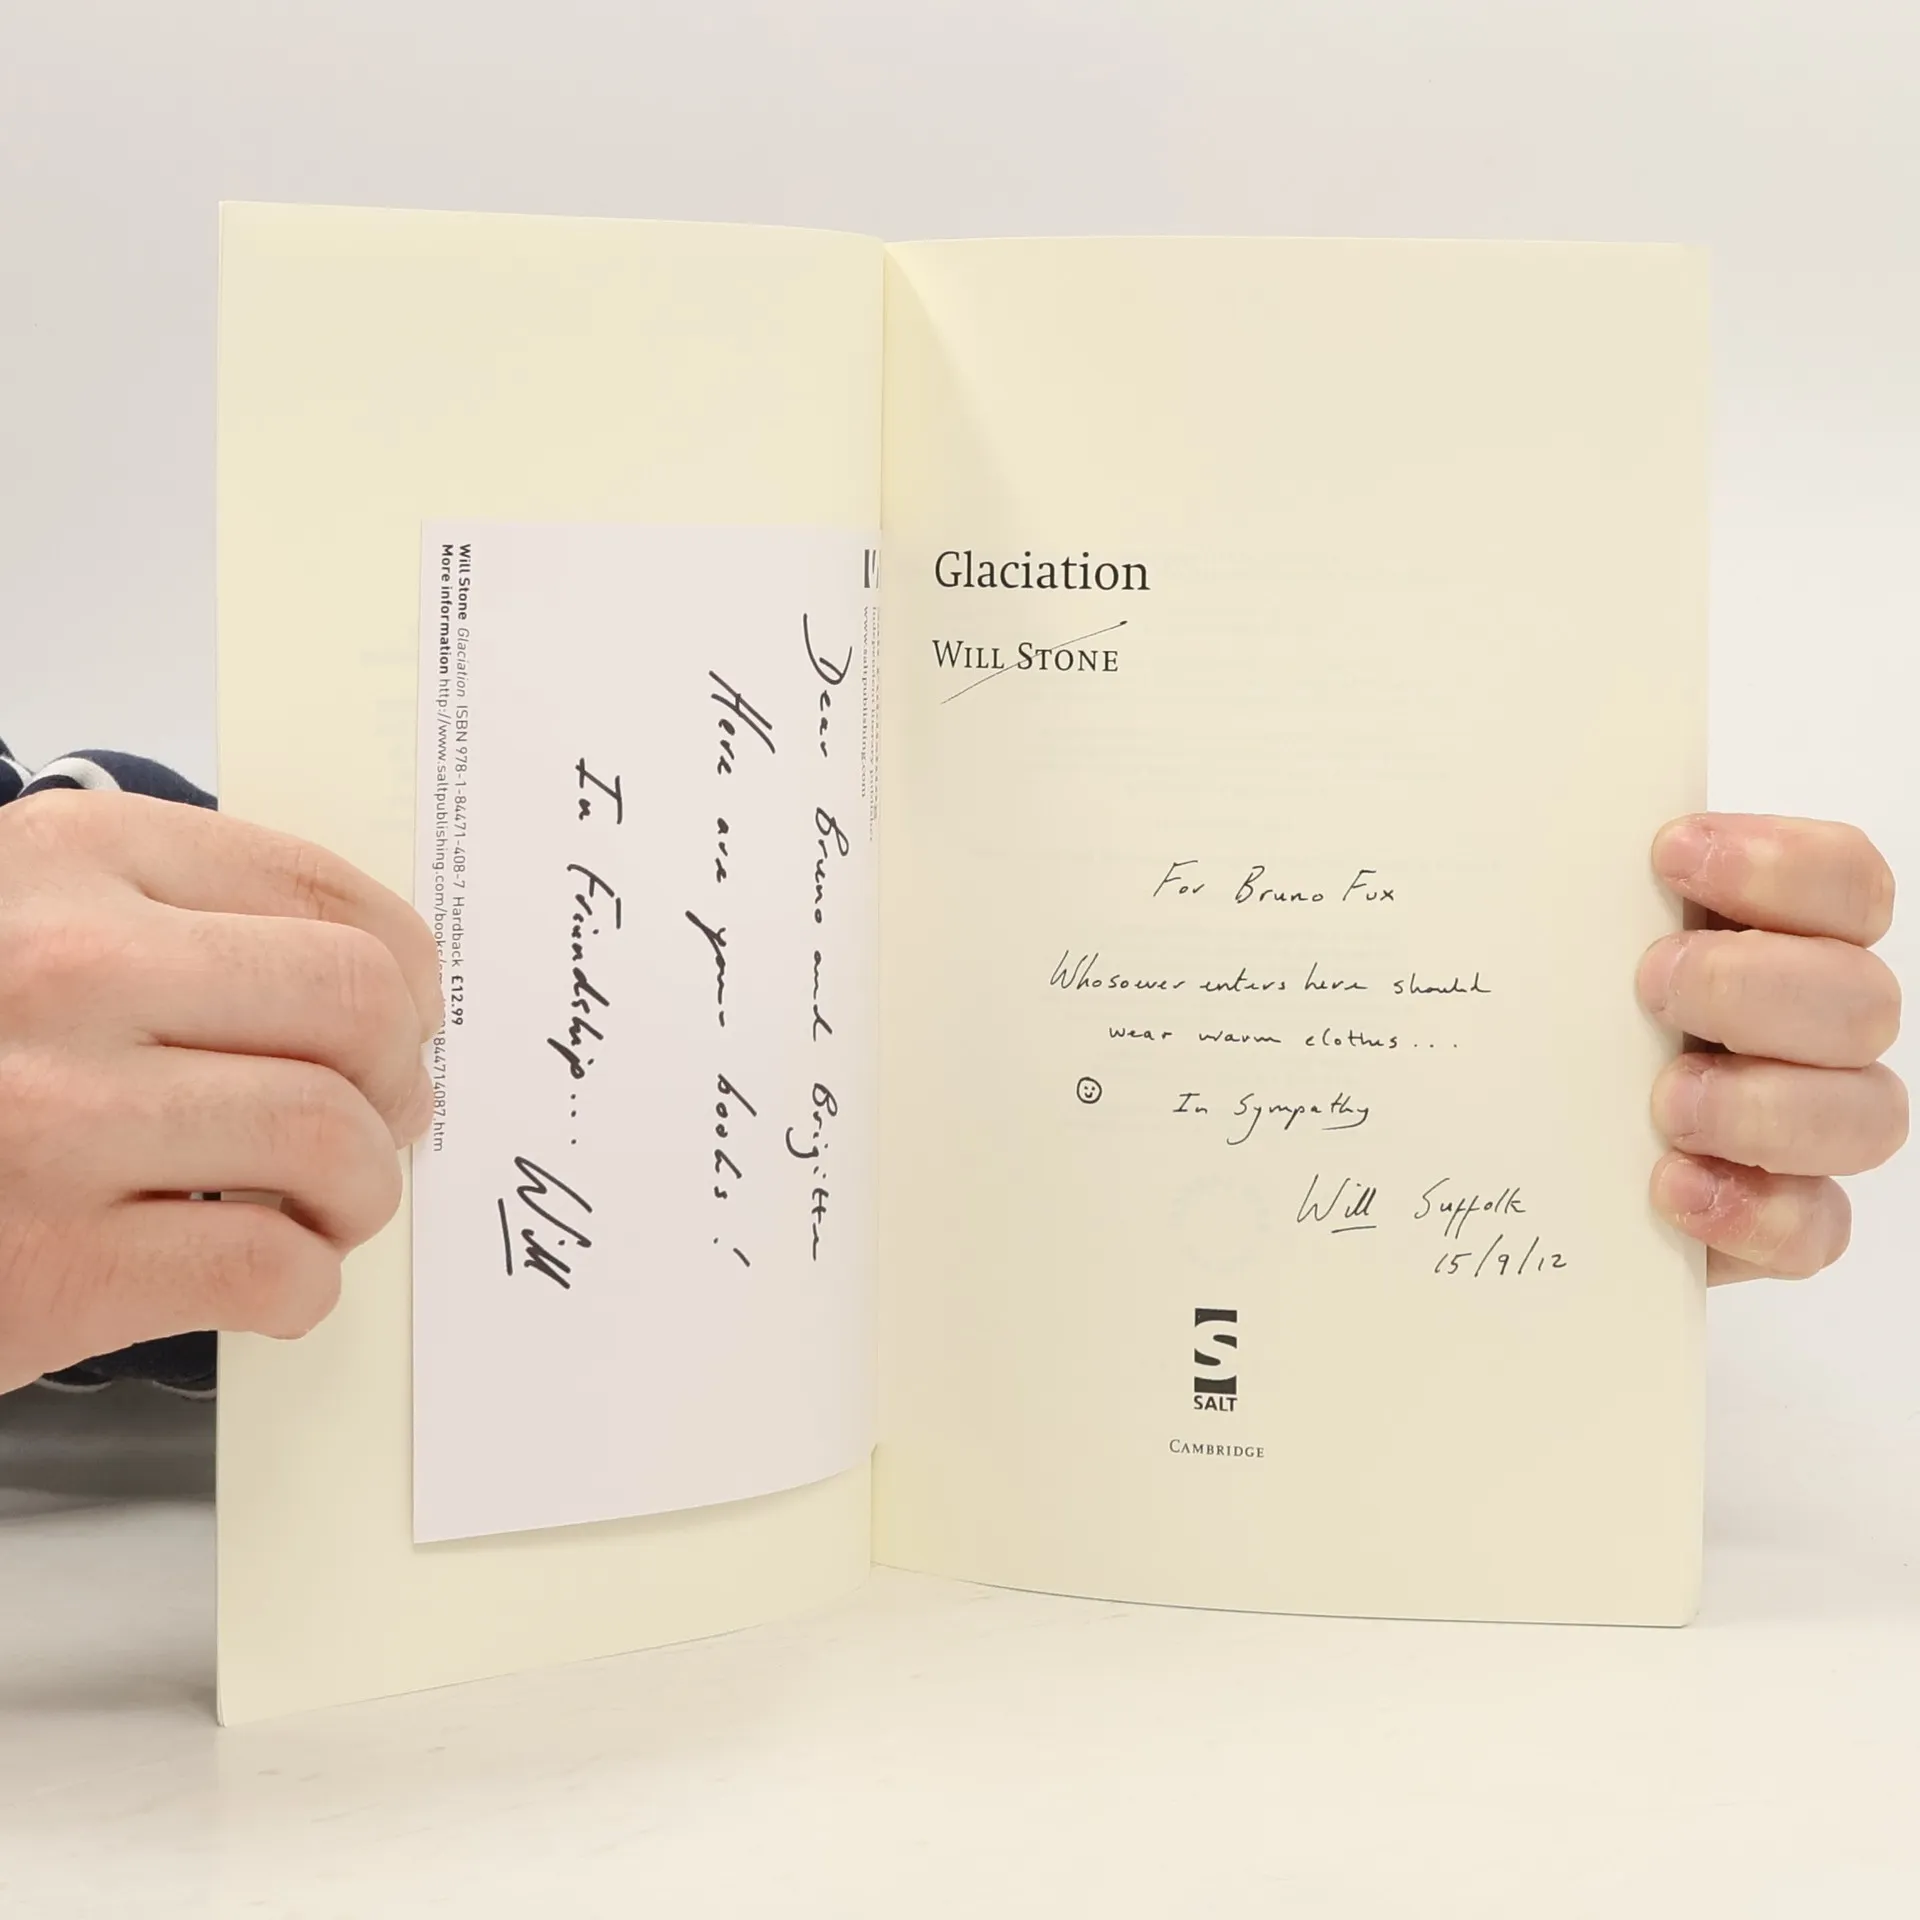 Dear Bruno and Brigitte
Here are your books!
In Friendship...
Will
Will Stone Glaciation ISBN 978-1-84471-408-7 Hardback £12.99
More information http://www.saltpublishing.com/books/
1844714087.htm
www.saltpublishing.com
Glaciation
WILL STONE
For Bruno Fux
Whosoever enters here should
wear warm clothes...
In Sympathy
Will Suffolk
15/9/12
SALT
CAMBRIDGE